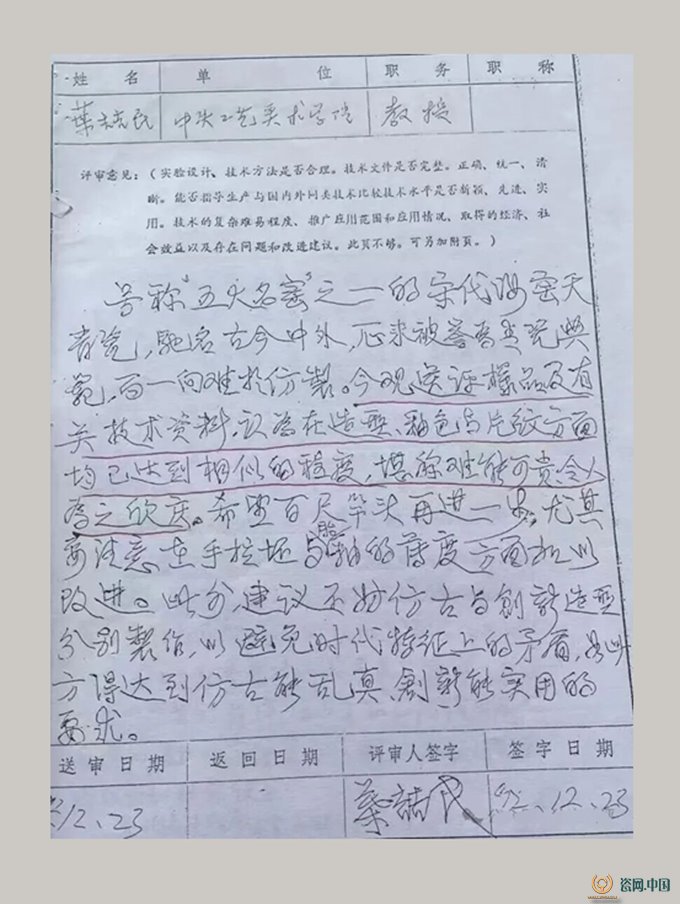 姓 名 单 位 职 务 职 称
葉喆民 中央工艺美术学院 教授
评审意见：（实验设计、技术方法是否合理。技术文件是否完整。正确、统一、清
晰。能否指导生产与国内外同类技术比较技术水平是否新颖、先进、实
用。技术的复杂难易程度、推广应用范围和应用情况、取得的经济、社
会效益以及存在问题和改进建议。此页不够。可另加附页。）
号称“五大名窑”之一的宋代汝窑天
青瓷，馳名古今中外，历来被誉为青瓷典
範，而一向难於仿製。今观送评樣品及有
关技术资料，认为在造型、釉色与片纹方面
均已达到相似的程度，堪称难能可贵令人
为之欣庆。希望百尺竿头再进一步，尤其
要注意在手拉坯与胎釉的薄度方面加以
改进。此外，建议不妨仿古与創新造型
分别製作，以避免时代特征上的矛盾，如此
方得达到仿古能乱真，創新能实用的
要求。
送审日期 返回日期 评审人签字 签字日期
12、23 葉喆民 92、12、23
瓷网.中国